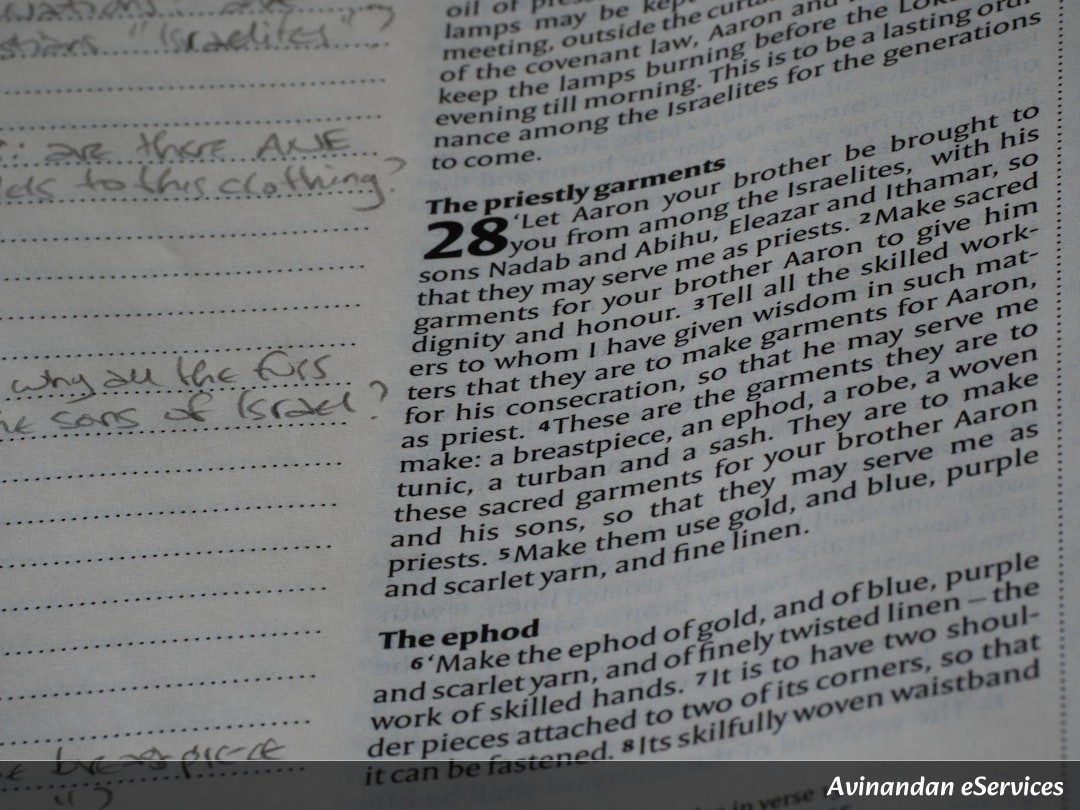 stions "Israelites"?
are there ANE
to this clothing?
why all the furs
sons of Israel?
breastpiece
oil of
lamps may be kep
meeting, outside the curta
of the covenant law, Aaron and
keep the lamps burning before the LOR
evening till morning. This is to be a lasting ordi
nance among the Israelites for the generations
to come.
The priestly garments
28 ‘Let Aaron your brother be brought to
you from among the Israelites, with his
sons Nadab and Abihu, Eleazar and Ithamar, so
that they may serve me as priests. 2Make sacred
garments for your brother Aaron to give him
dignity and honour. 3Tell all the skilled work-
ers to whom I have given wisdom in such mat-
ters that they are to make garments for Aaron,
for his consecration, so that he may serve me
as priest. 4These are the garments they are to
make: a breastpiece, an ephod, a robe, a woven
tunic, a turban and a sash. They are to make
these sacred garments for your brother Aaron
and his sons, so that they may serve me as
priests. 5Make them use gold, and blue, purple
and scarlet yarn, and fine linen.
The ephod
6‘Make the ephod of gold, and of blue, purple
and scarlet yarn, and of finely twisted linen – the
work of skilled hands. 7It is to have two shoul-
der pieces attached to two of its corners, so that
it can be fastened. 8Its skilfully woven waistband
in verse
Avinandan eServices